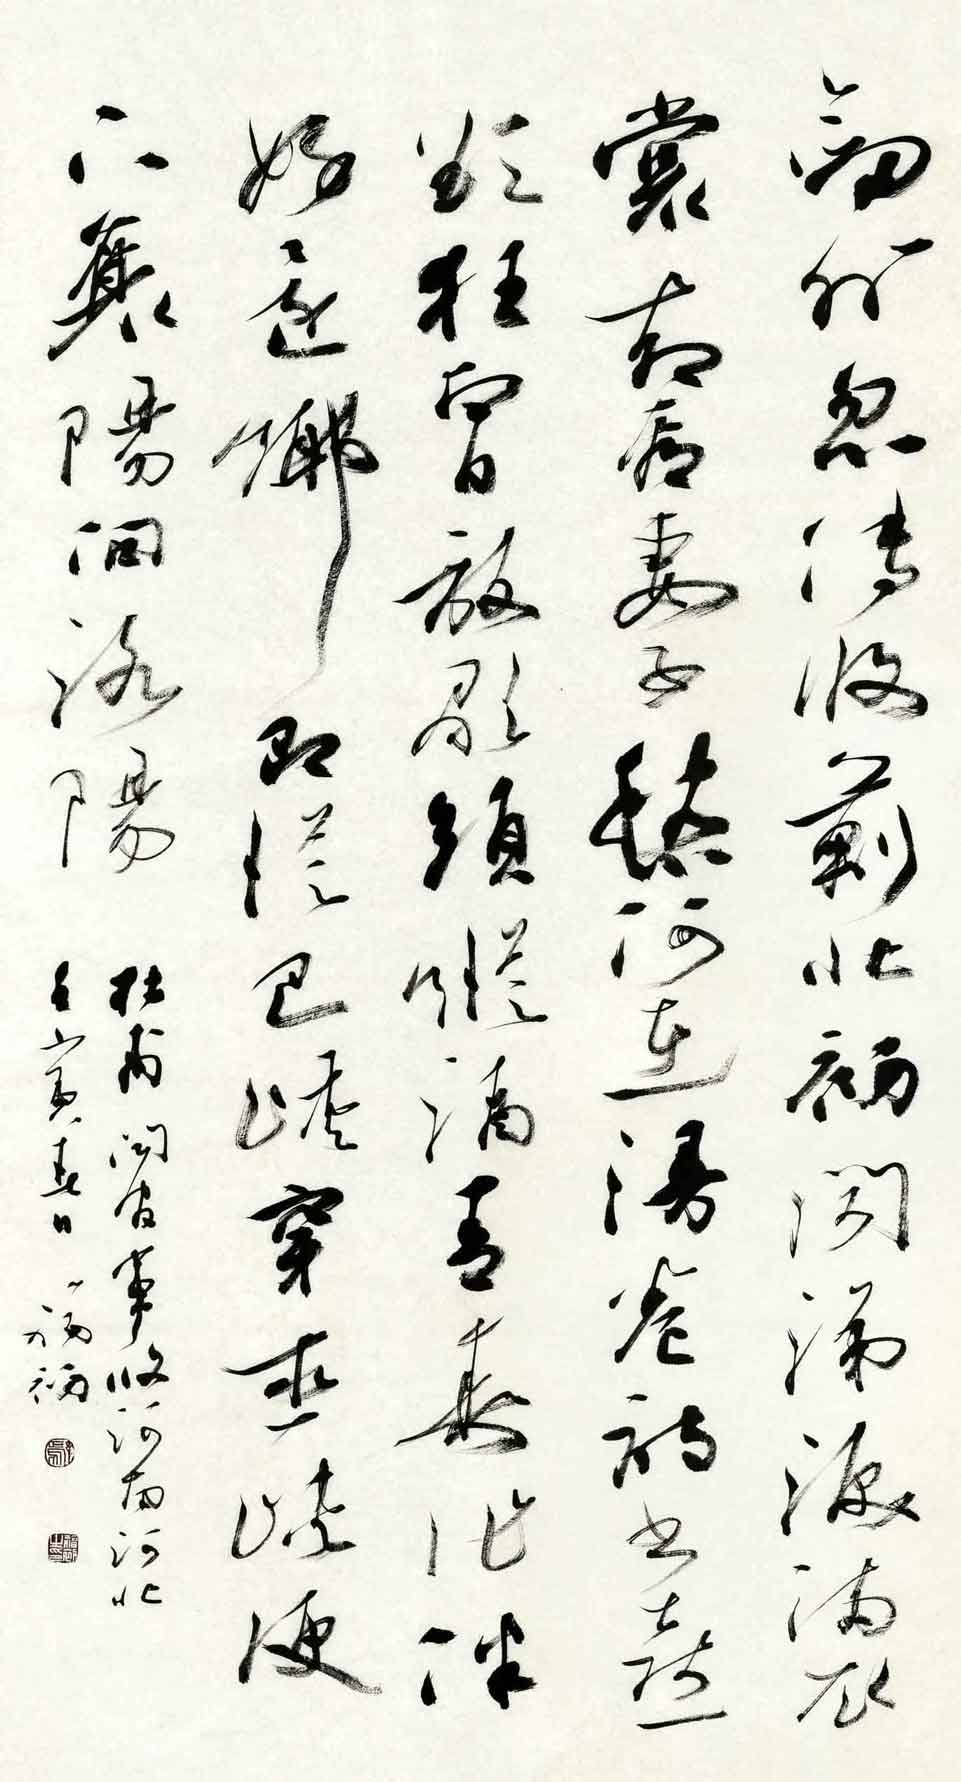 劍外忽傳收薊北初聞涕淚滿衣
裳却看妻子愁何在漫卷詩書喜
欲狂白日放歌須縱酒青春作伴
好還鄉即從巴峽穿巫峽便
下襄陽向洛陽
杜甫聞官軍收河南河北
壬寅春日